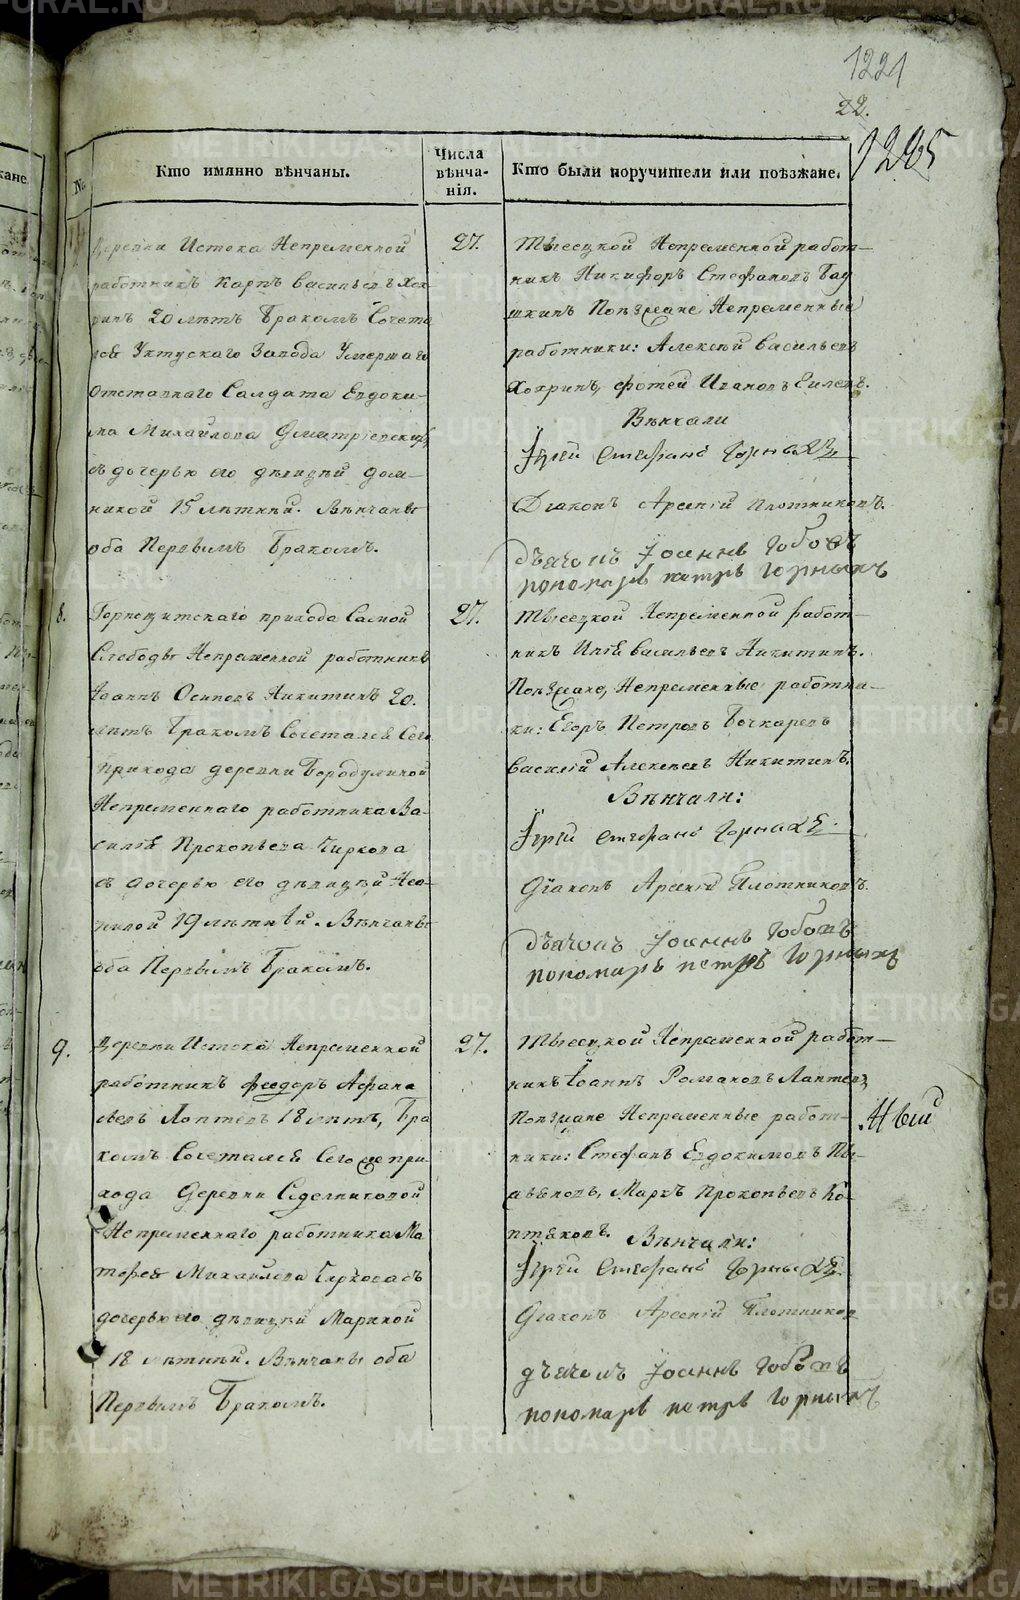 1221
22.
1205
№
Кто имянно вѣнчаны.
Числа
вѣнча-
нія.
Кто были поручители или поѣзжане.
Деревни Истока Непременной
работникъ Карпъ Васильевъ Хох-
ринъ 20 лѣтъ Бракомъ Сочета
лся Уктускаго Завода Умершаго
отставнаго Солдата Евдоки-
ма Михайлова Дмитріевскихъ
съ дочерью его дѣвицей Дом-
никой 15 лѣтней. Вѣнчаны
оба Первымъ Бракомъ.
27.
Тѣмсецкой Непременной работ-
никъ Никифоръ Стефановъ
Поѣзжане Непременные
работники: Алексѣй Васильевъ
Хохринъ, Фотей Ивановъ
Вѣнчали
Іерей Стефанъ Горныхъ
Діаконъ Арсеній Плотниковъ.
дьячокъ Іоаннъ
пономарь петръ Горныхъ
8.
Горнощитскаго прихода Самой
Слободы Непременной работникъ
Іоаннъ Осиповъ Никитинъ 20.
лѣтъ Бракомъ Сочетался Сего
прихода деревни Бородулиной
Непременнаго работника Ва-
силья Прокопьева Чиркова
съ дочерью его дѣвицей Нео-
нилой 19 лѣтней. Вѣнчаны
оба Первымъ Бракомъ.
27.
Непременной работ-
никъ Илья Васильевъ Никитинъ.
Поѣзжане, Непременные работни-
ки: Егоръ Петровъ Бочкаревъ
Василій Алексеевъ Никитинъ.
Вѣнчали:
Іерей Стефанъ Горныхъ
Діаконъ Арсеній Плотниковъ.
дьячокъ Іоаннъ
пономарь петръ Горныхъ
9.
Деревни Истока Непременной
работникъ Феодоръ Афана
сьевъ Лаптевъ 18 лѣтъ, Бра
комъ Сочетался Сего же при-
хода Деревни Седельниковой
Непременнаго работника Ма
тофея Михайлова Чиркова съ
дочерью его дѣвицей Мариной
18 лѣтней. Вѣнчаны оба
Первымъ Бракомъ.
27.
Непременной работ-
никъ Іоаннъ Романовъ Лаптевъ,
Поѣзжане Непременные работ-
ники: Стефанъ Евдокимовъ Пь-
янковъ, Маркъ Прокопьевъ Ко-
птяковъ. Вѣнчали:
Іерей Стефанъ Горныхъ
Діаконъ Арсеній Плотников
дьячокъ Іоаннъ
пономарь петръ Горныхъ
METRIKI.GASO-URAL.RU